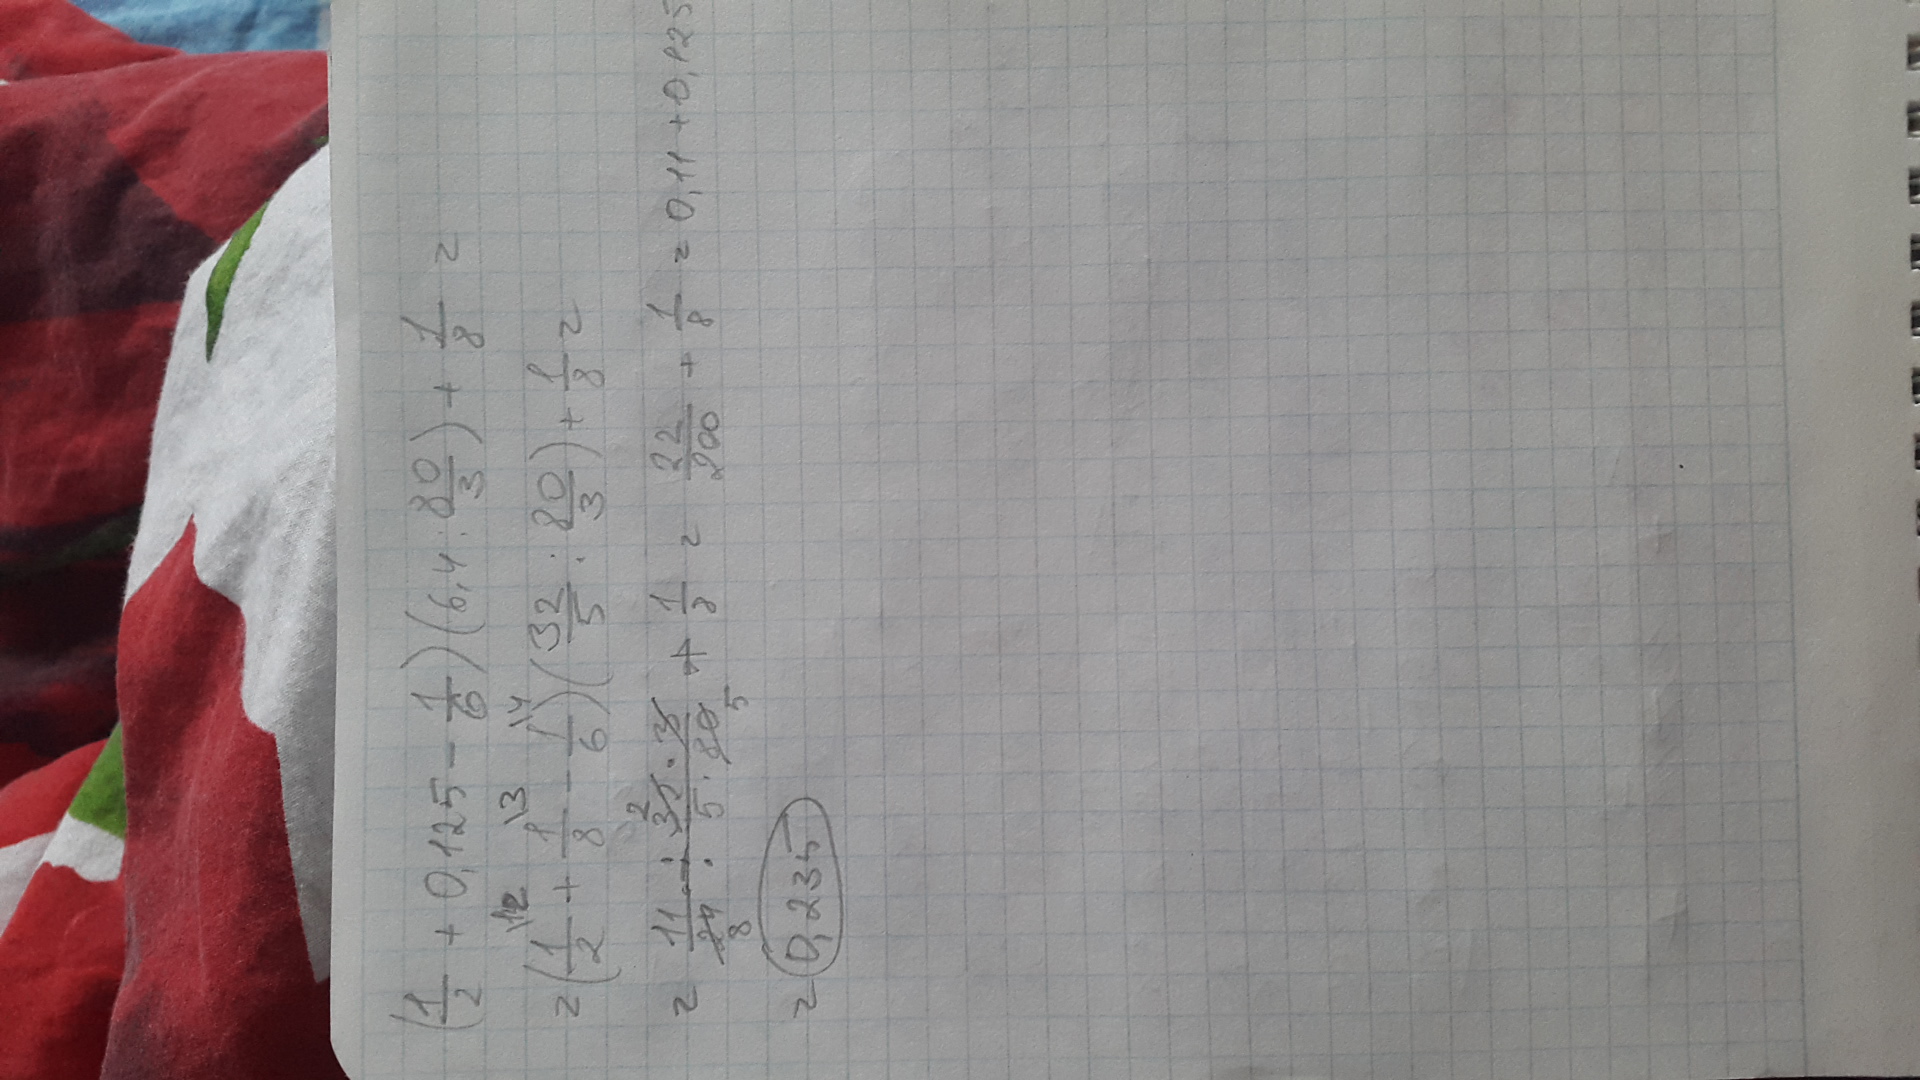 (1/2 + 0,125 - 1/6)(6,4 : 80/3) + 1/8 =
= (1/2 \12 + 1/8 \3 - 1/6 \4)(32/5 : 80/3) + 1/8 =
= 11/24 8 · 32 2 · 3/5 · 80 5 + 1/8 = 22/200 + 1/8 = 0,11 + 0,125
= 0,235